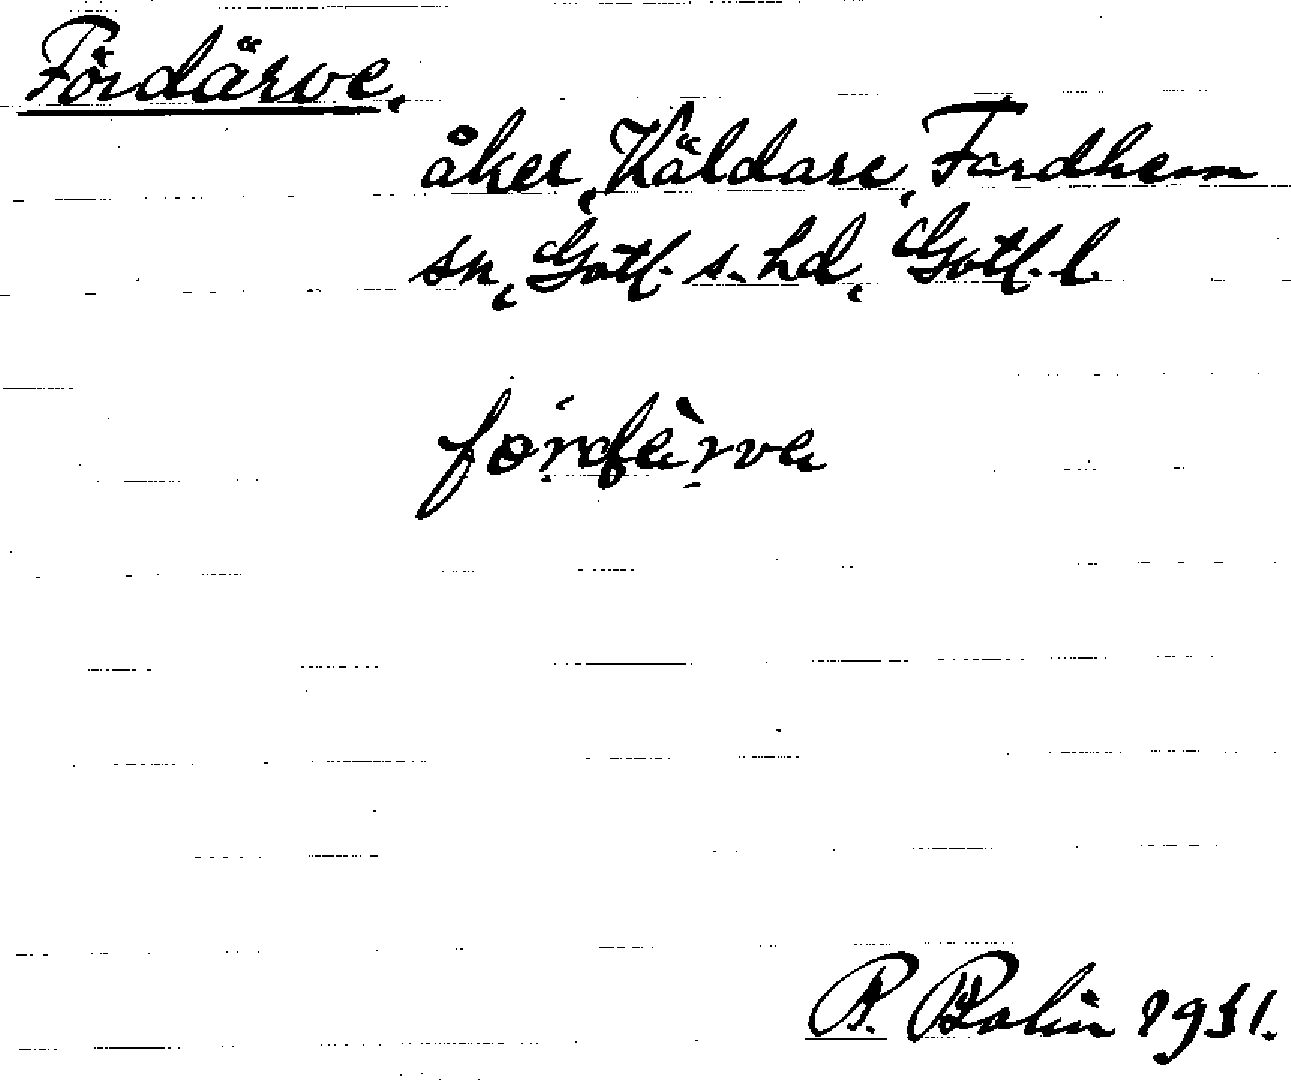 Fördärve.
åker, Käldare, Fardhem
sn, Gotl. s. hd, Gotl. l.
fördärva
R. Bolin 1931.